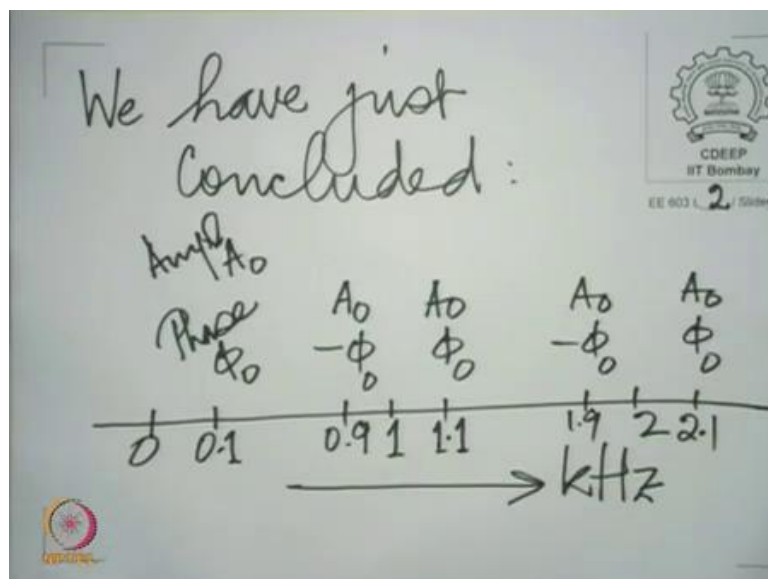 We have just
concluded:
CDEEP
IIT Bombay
EE 603 L 2 / Slide
Ampl A0
Phase
ϕ0
A0 A0 A0 A0
-ϕ0 ϕ0 -ϕ0 ϕ0
0 0.1 0.9 1 1.1 1.9 2 2.1
kHz